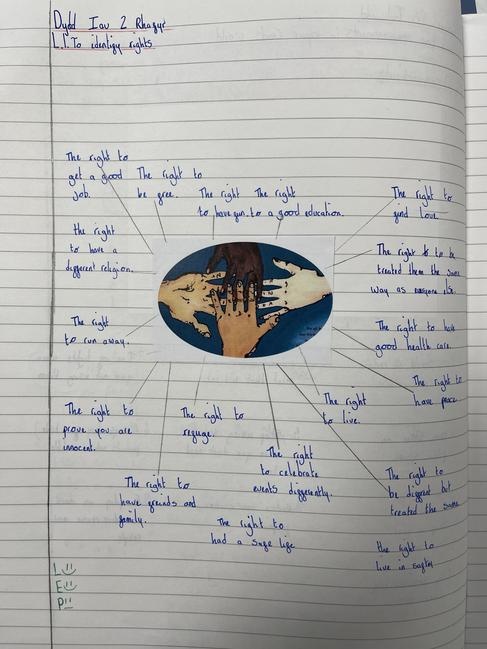 Dydd Iau 2 Rhagyr
L.I. To identigy rights
The right to
get a good
job.
The right to
be gree.
The right
to have gun.
The right
to a good education.
The right to
gind love.
the right
to have a
diggerent religion.
The right to be
treated them the same
way as everyone else.
The right
to run away.
The right to have
good health care.
The right to
have peace.
The right to
prove you are
innocent.
The right to
reguge.
The right
to live.
The right
to celebrate
events diggerently.
The right to
be diggrent but
treated the same
The right to
have greinds and
gamily.
The right to
had a sage lige
the right to
live in sagtey
L
E
P